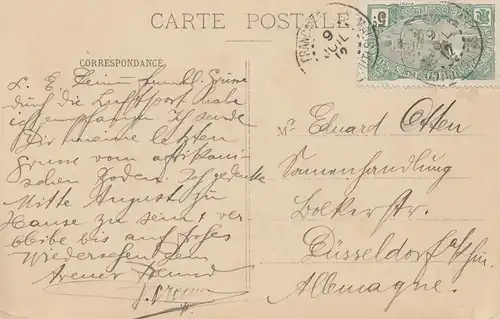 CARTE POSTALE
CORRESPONDANCE
L. E. Deine Grüsse
durch die Luftpost habe
ich empfangen. Ich sende
Dir meine letzten
Grüsse vom afrikani-
schen Boden. Ich gedenke
Mitte August zu
Hause zu sein & ver-
bleibe bis auf frohes
Wiedersehen Dein
treuer Freund
Mr Eduard Otten
Samenhandlung
Bolkerstr.
Düsseldorf a/Rhin.
Allemagne.
5c
9
JUIL
12